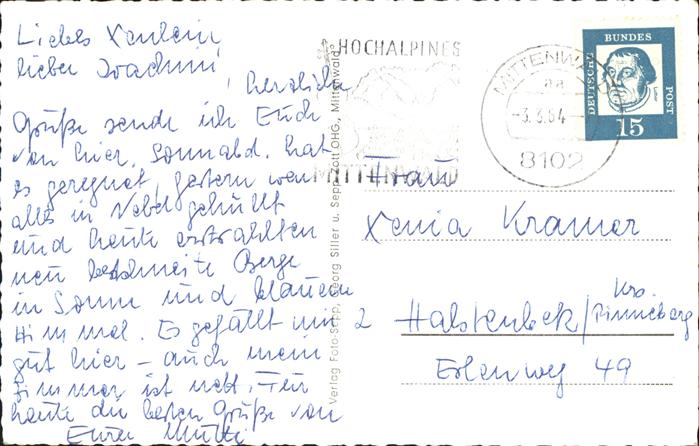 Liebes Xenlein,
lieber Joachim,
herzliche
Grüße sende ich Euch
von hier. Sonnabd. hat
es geregnet, gestern war
alles in Nebel gehüllt
und heute erstrahlten
neu beschneite Berge
in Sonne und blauem
Himmel. Es gefällt mir
gut hier – auch mein
Zimmer ist nett. Für
heute die besten Grüße von
Eurer Mutti
Verlag Foto-Sepp, Georg Siller u. Sepp Gott OHG., Mittenwald
HOCHALPINES
MITTENWALD
MITTENWALD
aa
-3.3.64
8102
DEUTSCHE
BUNDES
POST
15
Frau
Xenia Kramer
2 Halstenbek/Krs. Pinneberg
Erlenweg 49